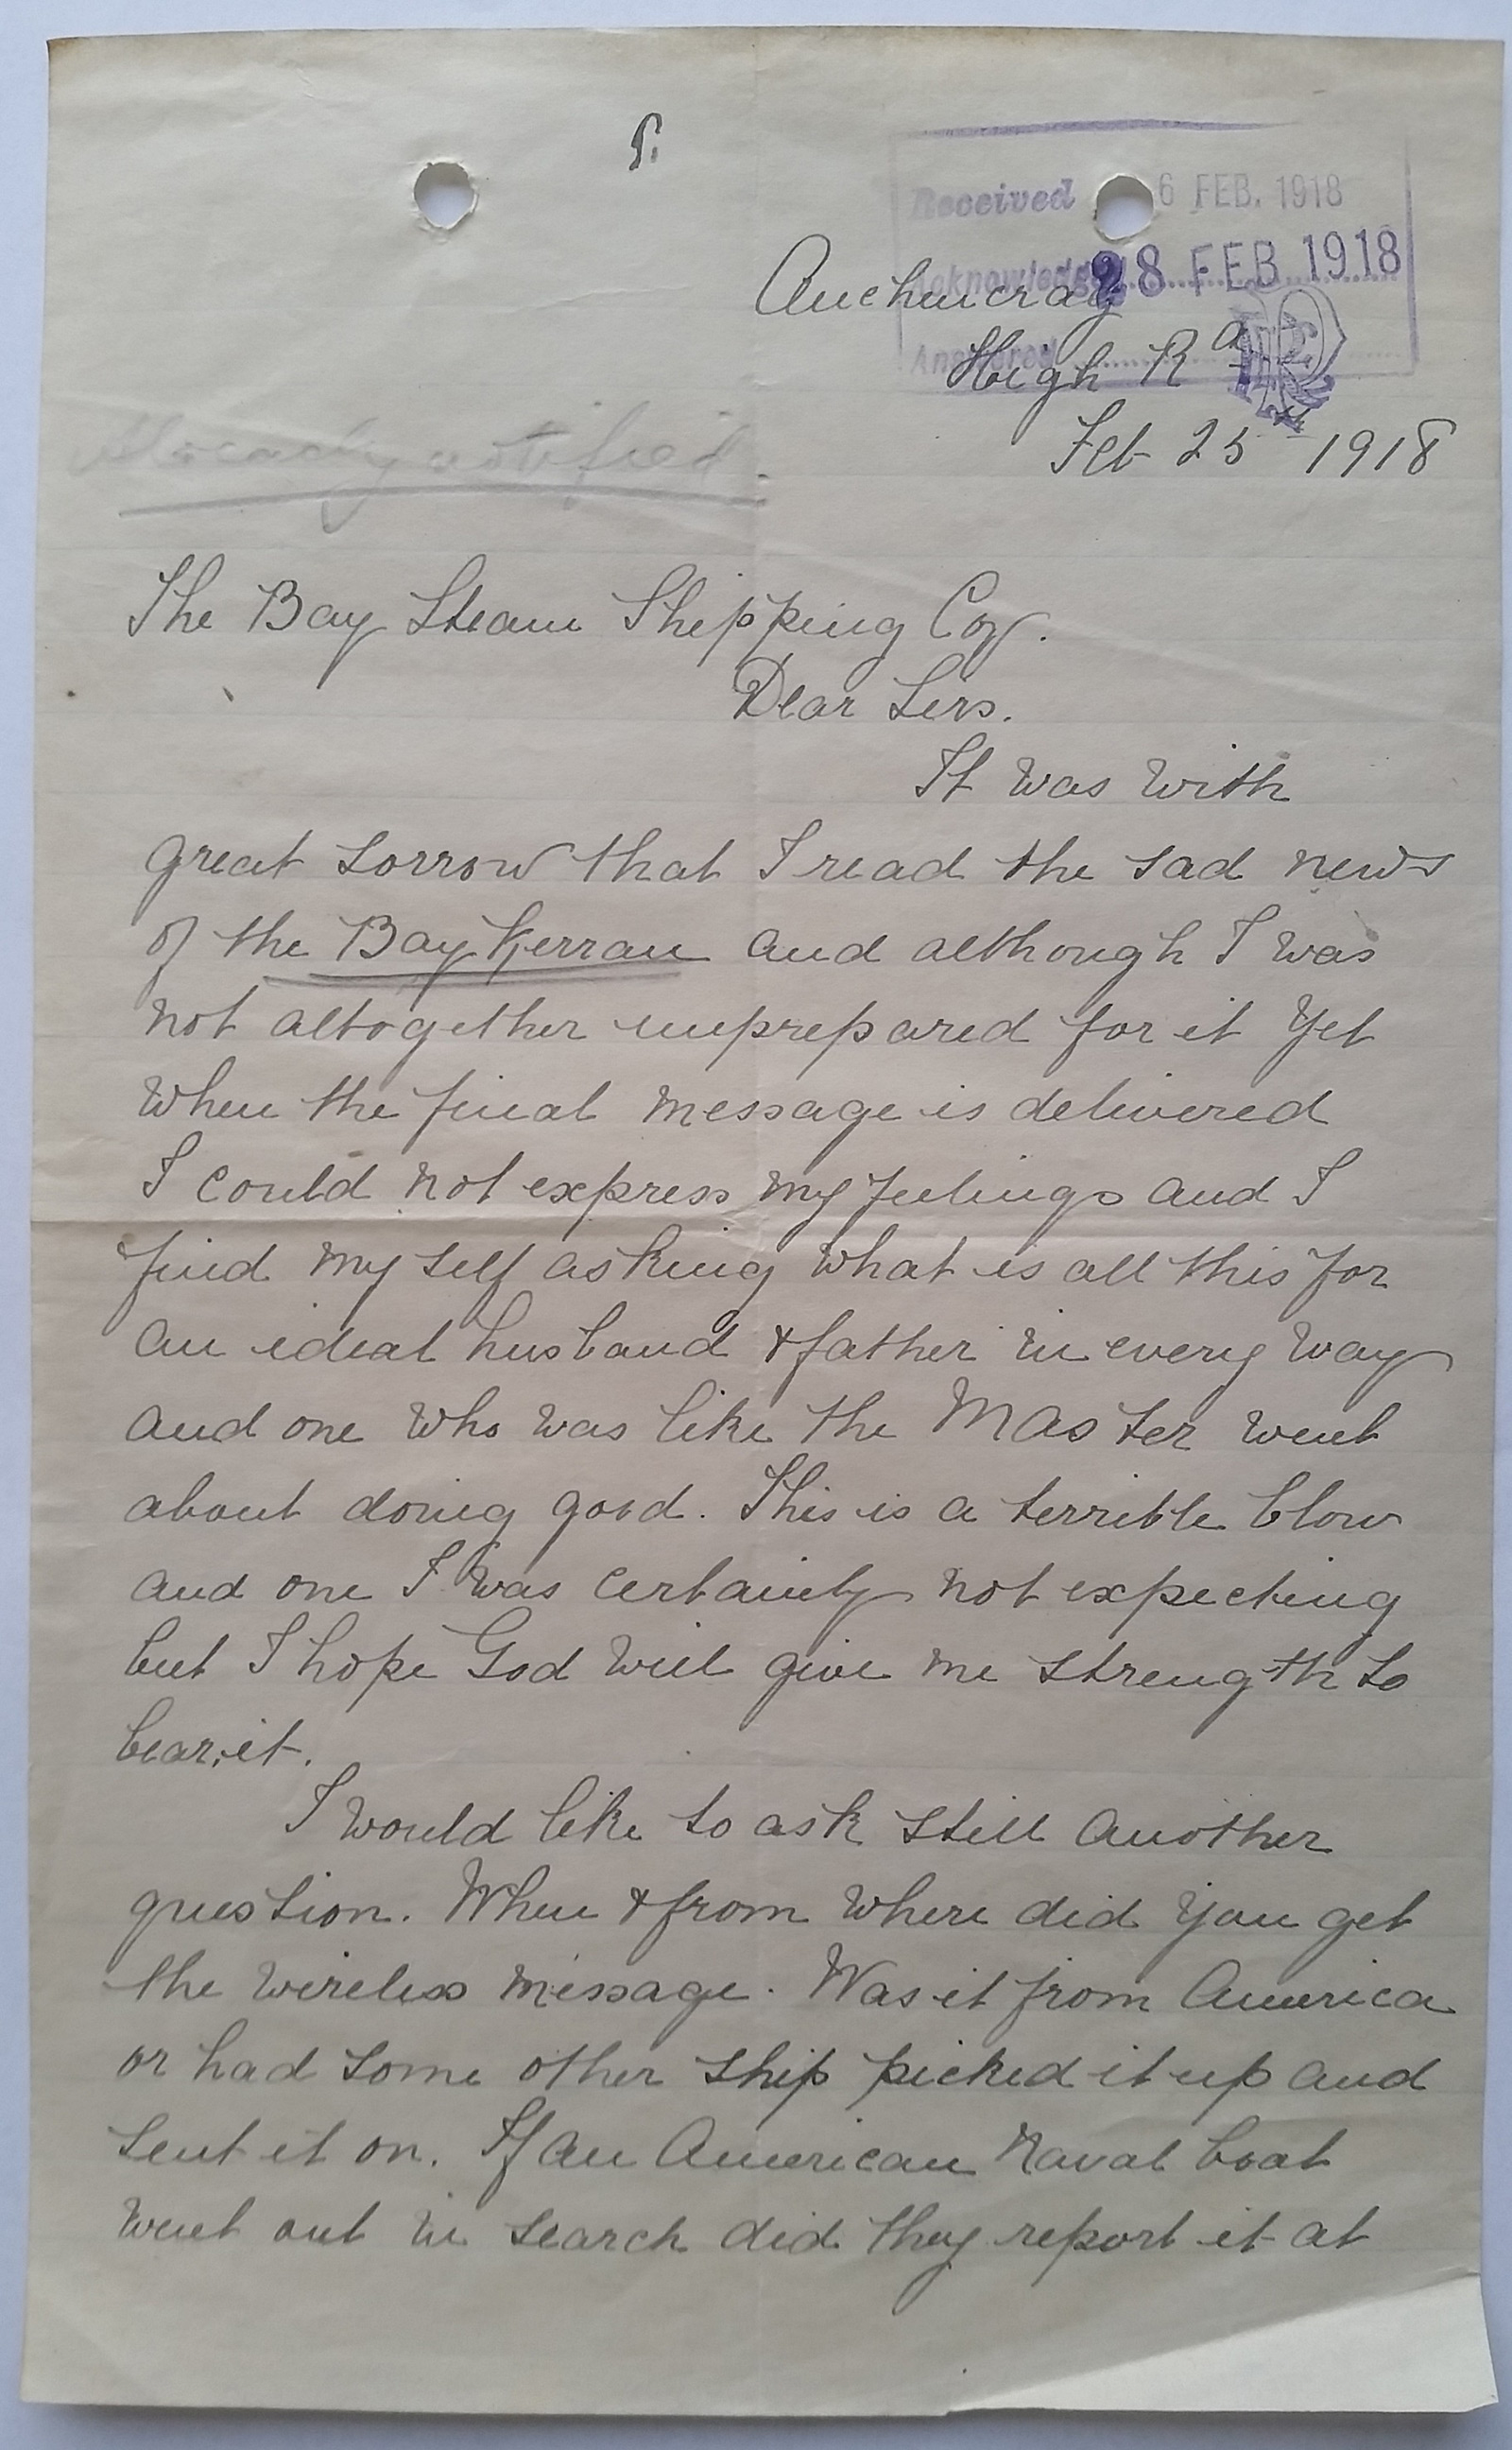 Received 6 FEB. 1918
Acknowledged 28 FEB 1918
Answered
Auchincray
High Rd
Feb 25th 1918
Already notified.
The Bay Steam Shipping Coy.
Dear Sirs.
It was with
great sorrow that I read the sad news
of the Bay Kerran and although I was
not altogether unprepared for it yet
when the final message is delivered
I could not express my feelings and I
find my self asking what is all this for
an ideal husband & father in every way
and one who was like the Master went
about doing good. This is a terrible blow
and one I was certainly not expecting
but I hope God will give me strength to
bear it.
I would like to ask still another
question. When & from where did you get
the wireless message. Was it from America
or had some other ship picked it up and
sent it on. If an American Naval boat
went out in search did they report it at